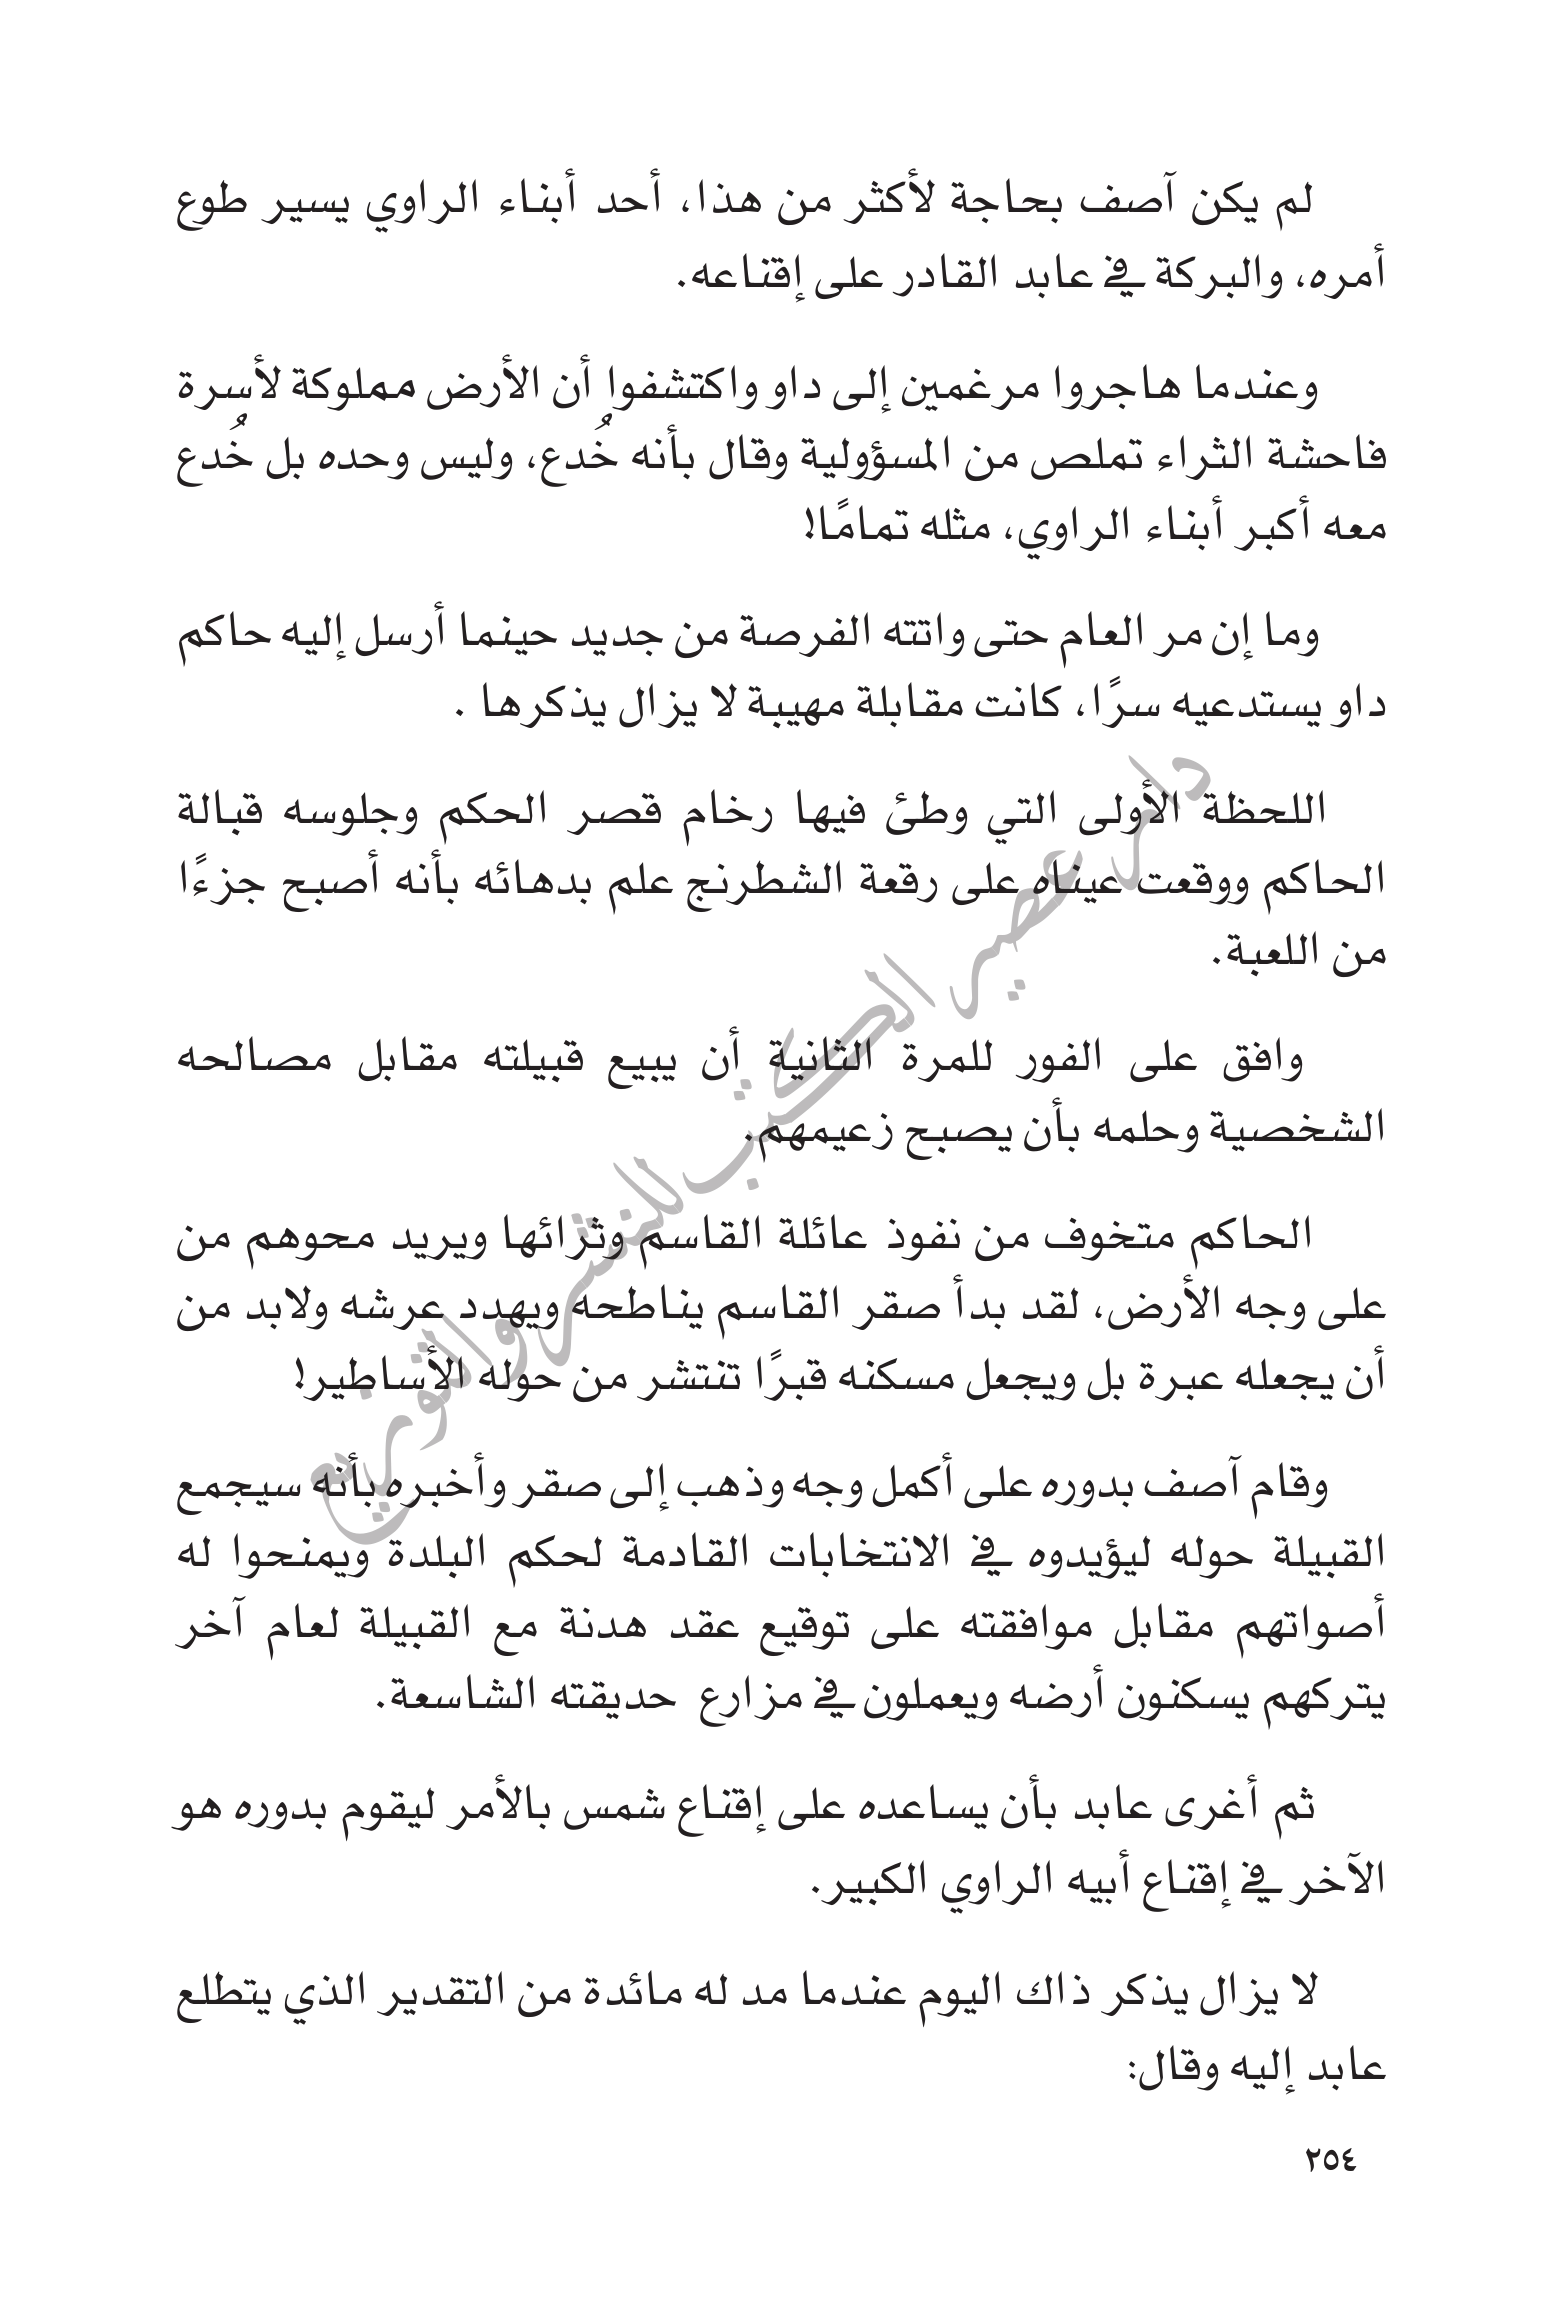 لم يكن آصف بحاجة لأكثر من هذا، أحد أبناء الراوي يسير طوع
أمره، والبركة في عابد القادر على إقناعه.
وعندما هاجروا مرغمين إلى داو واكتشفوا أن الأرض مملوكة لأسرة
فاحشة الثراء تملص من المسؤولية وقال بأنه خُدع، وليس وحده بل خُدع
معه أكبر أبناء الراوي، مثله تمامًا!
وما إن مر العام حتى واتته الفرصة من جديد حينما أرسل إليه حاكم
داو يستدعيه سرًا، كانت مقابلة مهيبة لا يزال يذكرها .
اللحظة الأولى التي وطئ فيها رخام قصر الحكم وجلوسه قبالة
الحاكم ووقعت عيناه على رقعة الشطرنج علم بدهائه بأنه أصبح جزءًا
من اللعبة.
وافق على الفور للمرة الثانية أن يبيع قبيلته مقابل مصالحه
الشخصية وحلمه بأن يصبح زعيمهم.
الحاكم متخوف من نفوذ عائلة القاسم وثرائها ويريد محوهم من
على وجه الأرض، لقد بدأ صقر القاسم يناطحه ويهدد عرشه ولابد من
أن يجعله عبرة بل ويجعل مسكنه قبرًا تنتشر من حوله الأساطير!
وقام آصف بدوره على أكمل وجه وذهب إلى صقر وأخبره بأنه سيجمع
القبيلة حوله ليؤيدوه في الانتخابات القادمة لحكم البلدة ويمنحوا له
أصواتهم مقابل موافقته على توقيع عقد هدنة مع القبيلة لعام آخر
يتركهم يسكنون أرضه ويعملون في مزارع حديقته الشاسعة.
ثم أغرى عابد بأن يساعده على إقناع شمس بالأمر ليقوم بدوره هو
الآخر في إقناع أبيه الراوي الكبير.
لا يزال يذكر ذاك اليوم عندما مد له مائدة من التقدير الذي يتطلع
عابد إليه وقال:
٢٥٤
دار عصير الكتب للنشر والتوزيع